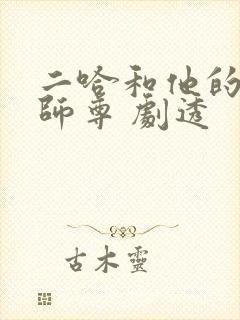 二哈和他的
師尊 劇透
古木靈